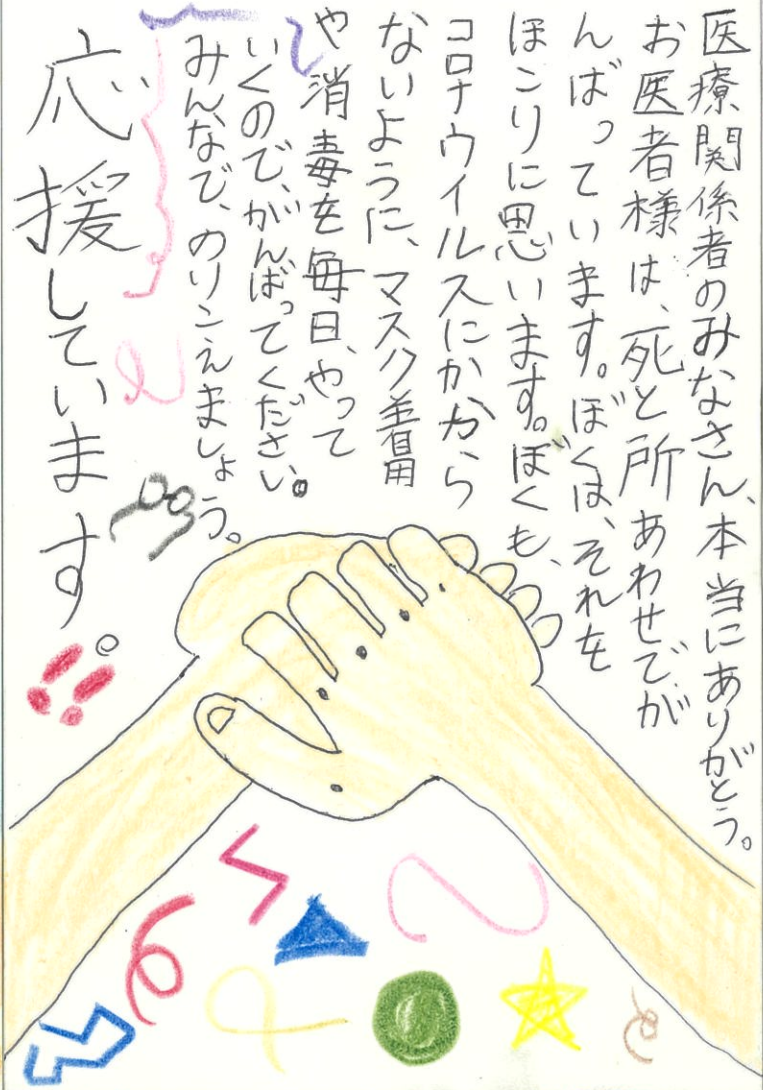 医療関係者のみなさん、本当にありがとう。
お医者様は、死と所あわせで、が
んばっています。ぼくは、それを
ほこりに思います。ぼくも、
コロナウイルスにかから
ないように、マスク着用
や消毒を毎日、やって
いくので、がんばってください。
みんなで、のりこえましょう。
応援しています。!!